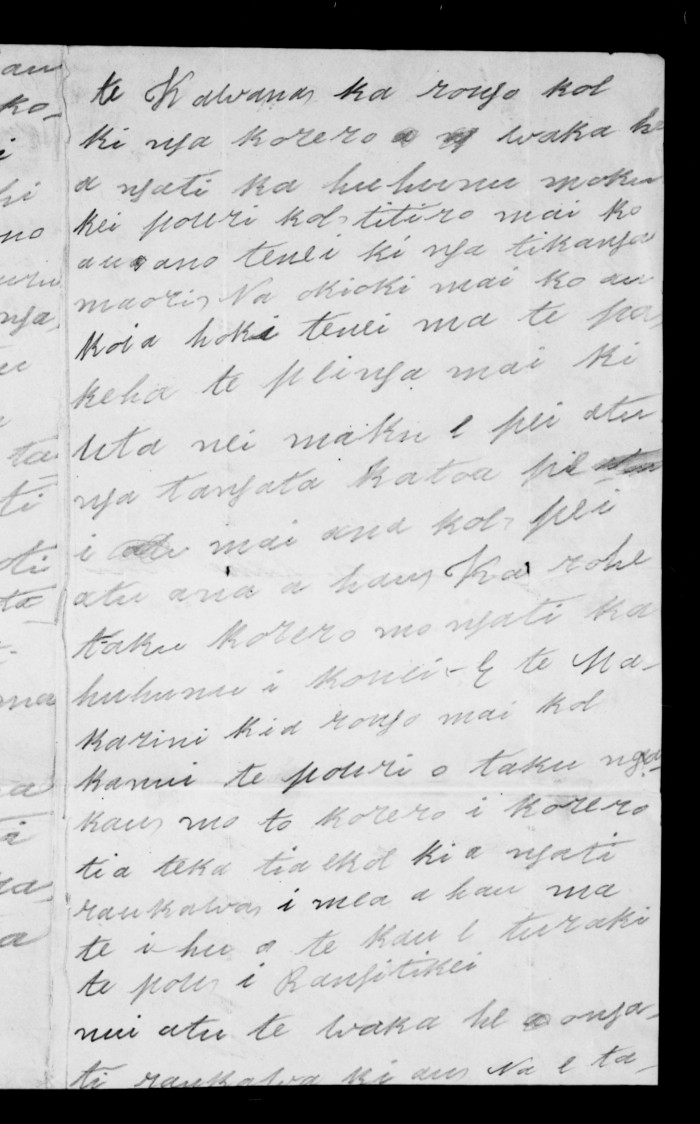 au
ko-
i
hi
no
uru
nga,
u
ta
ti
oti
ta
ma
a
a
te Kawana, ka rongo koe
ki nga korero a waka he
a ngati ka huhunu moku
kei pouri koe, titiro mai ko
au ano tenei ki nga tikanga
maori, Na okioki mai ko au
Koia hoki tenei ma te pa,
keha te peinga mai ki
uta nei maku e pei atu
nga tangata katoa pe
i mai ana koe, pei
atu ana a hau, Ka rohe
taku korero mo ngati ka
huhunu i konei - E te Ma-
karini kia rongo mai koe
kanui te pouri o taku nga-
kau, mo to korero i korero
tia teka tia e koe ki a ngati
raukawa, i mea a hau ma
te i hu a te kau e turaki
te pou, i Rangitikei
nui atu te waka he o nga-
ti raukawa ki au, Na e ta-